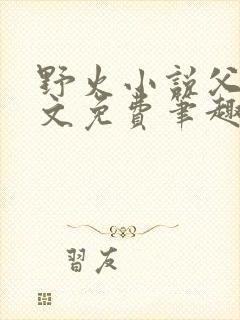 野火小說父
文免費筆趣
習友